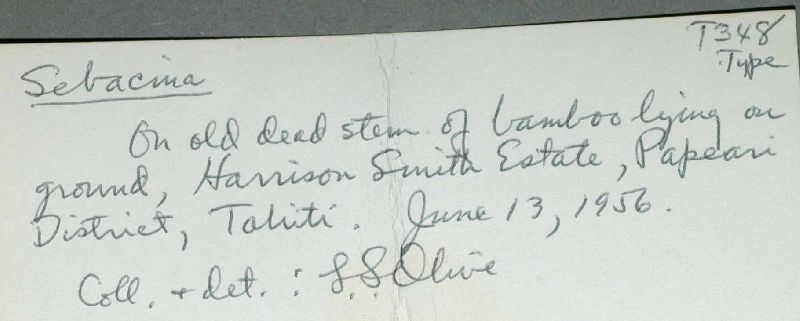 T348
Type
Sebacina
On old dead stem of bamboo lying on
ground, Harrison Smith Estate, Papeari
District, Tahiti. June 13, 1956.
Coll. + det. : L.S. Olive